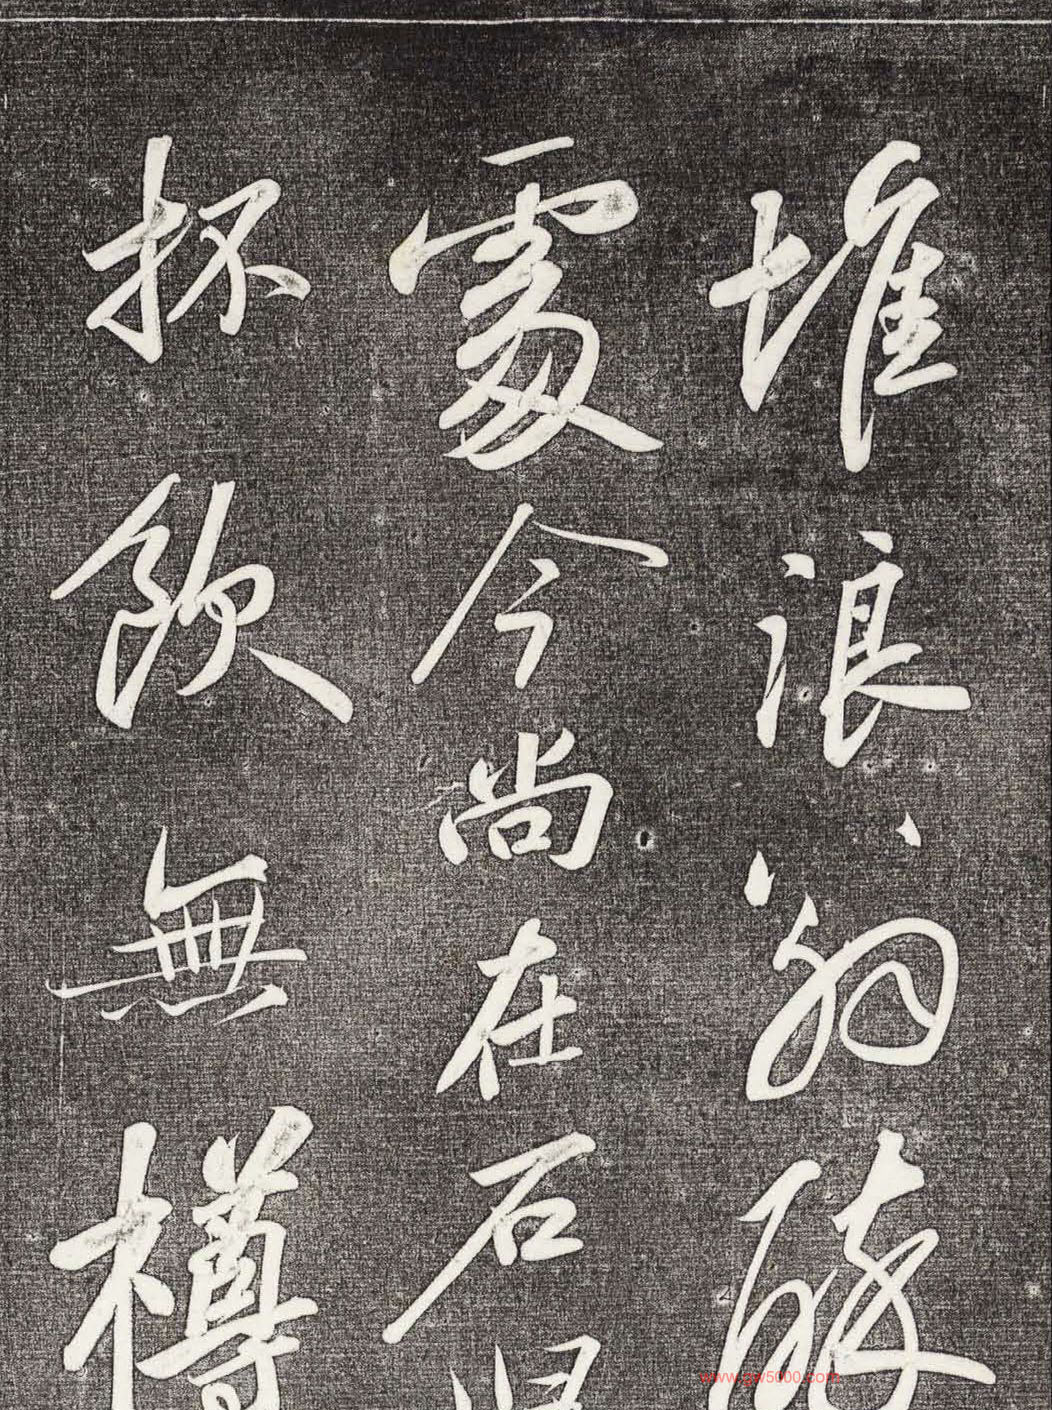 堆浪翁醉
處今尚在石臼
抔飲無樽
www.gw5000.com